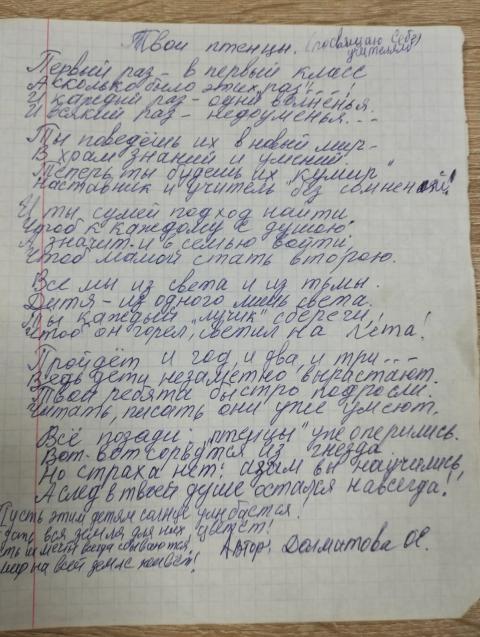 Твои птенцы. (посвящаю себе учителям)
Первый раз - в первый класс
А сколько было этих "раз"...!
И каждый раз - одни волненья.
И всякий раз - недоуменья...
Ты поведёшь их в новый мир -
В храм знаний и умений.
Теперь ты будешь их "кумир"
Наставник и учитель "без сомнений!
И ты сумей подход найти,
Чтоб к каждому с душою,
А значит - и в семью войти,
Чтоб мамой стать второю.
Все мы из света и из тьмы.
Дитя - из одного лишь света.
Ты каждый "лучик" сбереги,
Чтоб он горел, светил на лета!
Пройдёт и год, и два, и три...
Ведь дети незаметно вырастают.
Твои ребята быстро подросли.
Читать, писать они уже умеют.
Всё позади. "птенцы" уже оперились.
Вот-вот сорвутся из гнезда
Но страха нет: азам вы научились,
А след в твоей душе остался навсегда!
Пусть этим детям солнце улыбается!
вся земля для них цветёт!
мечты всегда сбываются,
мир на всей земле живёт!
Автор: Долматова О.С.